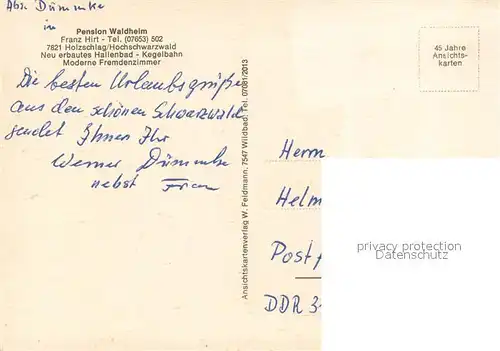 Abs. Dümmke
in
Pension Waldheim
Franz Hirt - Tel. (07653) 502
7821 Holzschlag/Hochschwarzwald
Neu erbautes Hallenbad - Kegelbahn
Moderne Fremdenzimmer
Die besten Urlaubsgrüße
aus den schönen Schwarzwald
sendet Ihnen Ihr
Werner Dümmke
nebst Frau
Ansichtskartenverlag W. Feldmann, 7547 Wildbad, Tel. 07081/2013
45 Jahre
Ansichts-
karten
Herrn
Helm
Postf
DDR 3
privacy protection
Ansichtskarten-Lexikon